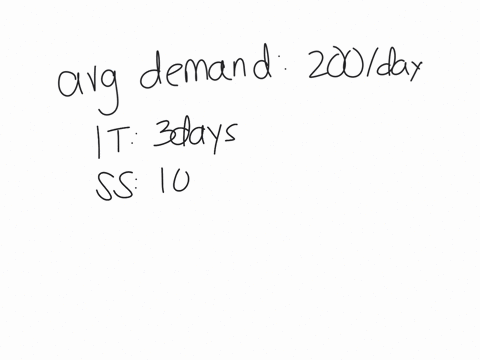 avg demand: 200/day
IT: 3days
SS: 10